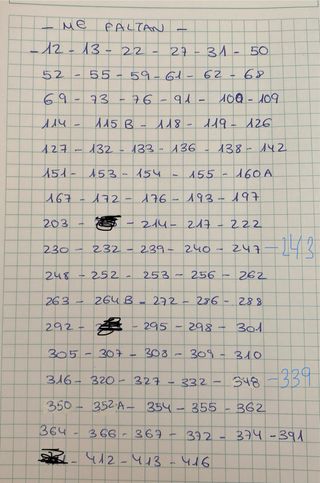 - ME FALTAN -
- 12 - 13 - 22 - 27 - 31 - 50
52 - 55 - 59 - 61 - 62 - 68
69 - 73 - 76 - 91 - 100 - 109
114 - 115B - 118 - 119 - 126
127 - 132 - 133 - 136 - 138 - 142
151 - 153 - 154 - 155 - 160A
167 - 172 - 176 - 193 - 197
203 - - 214 - 217 - 222
230 - 232 - 239 - 240 - 247 - 243
248 - 252 - 253 - 256 - 262
263 - 264B - 272 - 286 - 288
292 - - 295 - 298 - 301
305 - 307 - 308 - 309 - 310
316 - 320 - 327 - 332 - 348 - 339
350 - 352A - 354 - 355 - 362
364 - 366 - 367 - 372 - 374 - 391
- 412 - 413 - 416